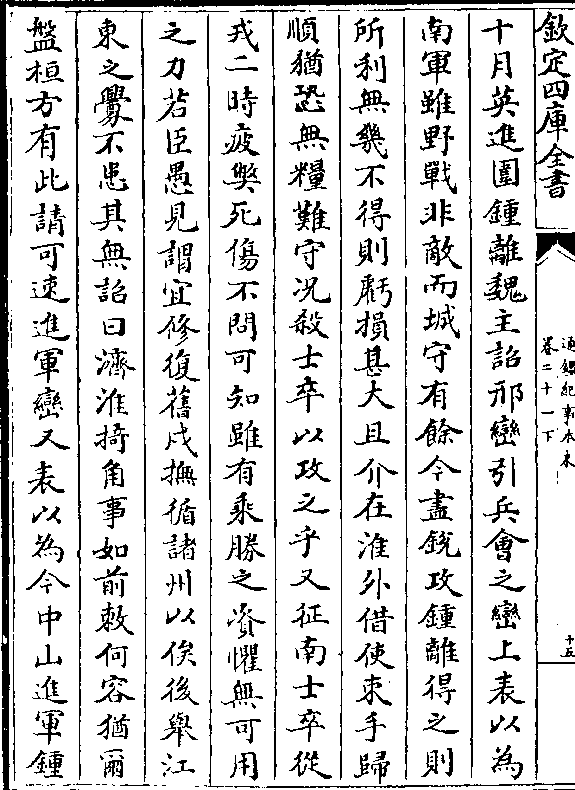 欽定四庫全書
通鑑紀事本末
卷二十一下
十五
十月英進圍鍾離魏主詔邢巒引兵會之巒上表以為
南軍雖野戰非敵而城守有餘今盡銳攻鍾離得之則
所利無幾不得則虧損甚大且介在淮外借使束手歸
順猶恐無糧難守况殺士卒以攻之乎又征南士卒從
戎二時疲弊死傷不問可知雖有乗勝之資懼無可用
之力若臣愚見謂宜修復舊戍撫循諸州以俟後舉江
東之釁不患其無詔曰濟淮掎角事如前敕何容猶爾
盤桓方有此請可速進軍巒又表以為今中山進軍鍾